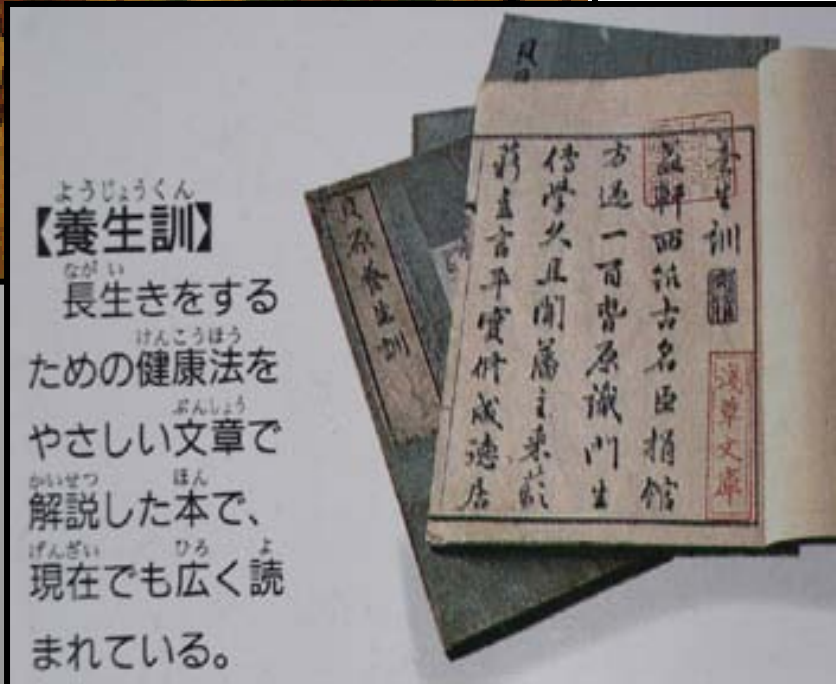 ようじょうくん
【養生訓】
ながい
長生きをする
けんこうほう
ための健康法を
ぶんしょう
やさしい文章で
かいせつ ほん
解説した本で、
げんざい ひろ よ
現在でも広く読
まれている。
貝原養生訓
養生訓
淺草文庫
益軒西筑古名臣捐館
方過一百